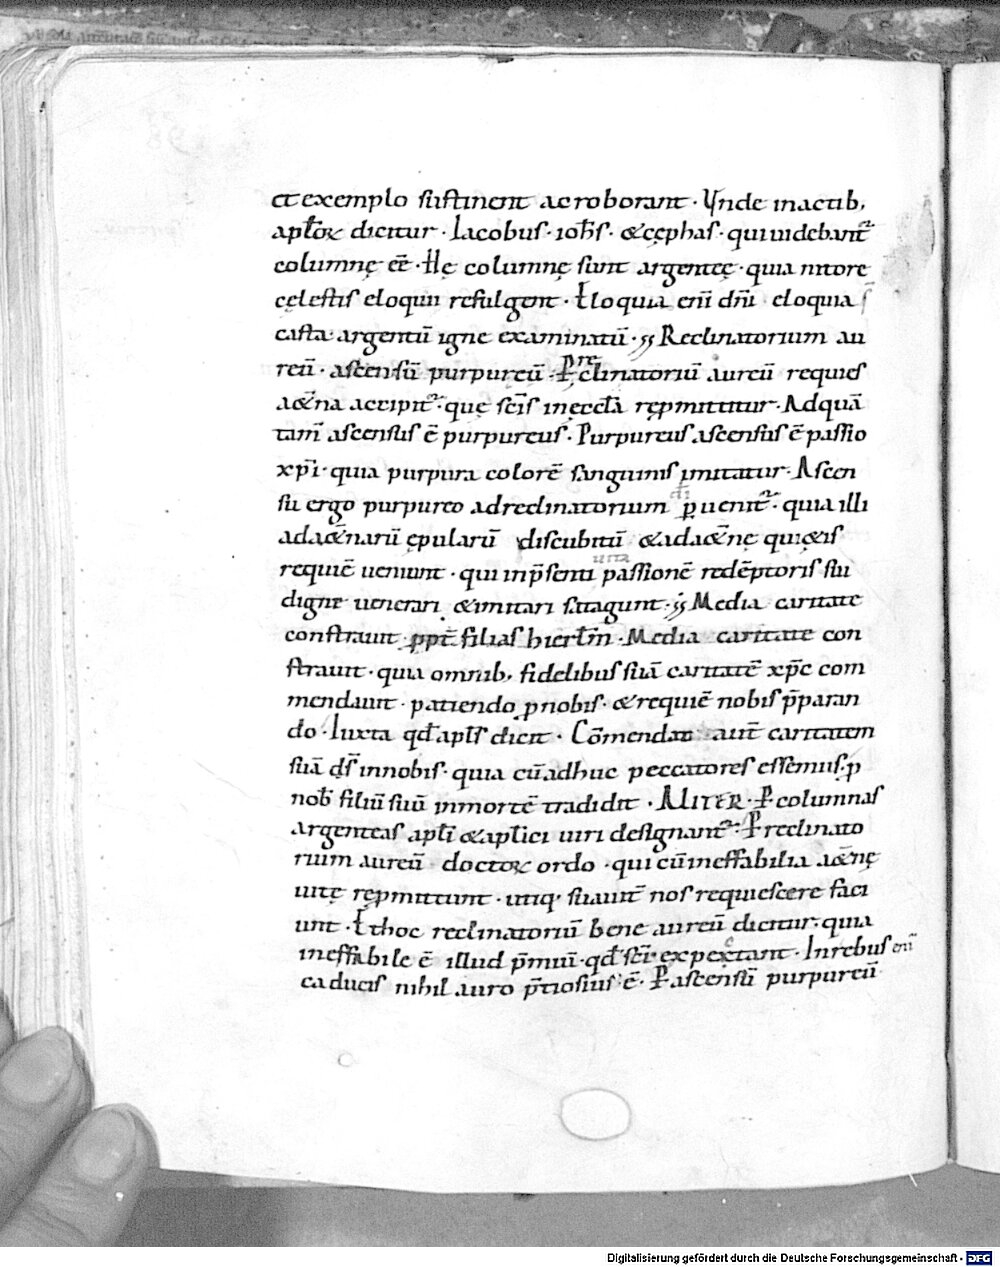 et exemplo sustinent ac roborant · Unde inactib;
apl̅oꝝ dicitur · Iacobus · ioh̅s · &cęphas · quiuidebant᷑
columnę ee̅ · Hę columnę sunt argenteę · quia nitore
cęlestis eloquii refulgent · Eloquia eni̅ dn̅i eloquia
casta argentu̅ igne examinatu̅ · Reclinatorium au
reu̅ · ascensu̅ purpureu̅ · Per reclinatoriu̅ aureu̅ requies
a&̅na accipit᷑ · quę sc̅is inęccl̅a rępmittitur · Adqua̅
tam̅ ascensus e̅ purpureus · Purpureus ascensus e̅ passio
xp̅i · quia purpura colore̅ sanguinis imitatur · Ascen
su ergo purpureo adreclinatorium ꝑuenit᷑ · quia illi
ada&̅naru̅ ępularu̅ discubitu̅ &ada&̅nę qui&is
requie̅ ueniunt · qui inp̅senti passione̅ rede̅ptoris sui
digne uenerari &imitari satagunt · Media caritate
constrauit ꝓpt̅ filias hierl̅m · Media caritate con
strauit · quia omnib; fidelibus sua̅ caritate̅ xp̅c com
mendauit · patiendo ꝓnobis · &requie̅ nobis p̅paran
do · Iuxta qd̅ apl̅s dicit · Co̅mendat aut̅ caritatem
sua̅ ds̅ innobis · quia cu̅adhuc peccatores essemus · ꝓ
nob̅ filiu̅ suu̅ inmorte̅ tradidit · ALITER · Ꝑ columnas
argenteas apl̅i &apl̅ici uiri designant᷑ · Ꝑ reclinato
rium aureu̅ doctoꝝ ordo · qui cu̅ineffabilia a&̅nę
uitę rępmittunt · utiq; suauit̅ nos requiescere faci
unt · Ethoc reclinatoriu̅ bene aureu̅ dicitur · quia
ineffabile e̅ illud p̅miu̅ · qd̅ sc̅i expectant · Inrebus eni̅
caducis nihil auro p̅tiosius e̅ · Ꝑ ascensu̅ purpureu̅
Digitalisierung gefördert durch die Deutsche Forschungsgemeinschaft - DFG